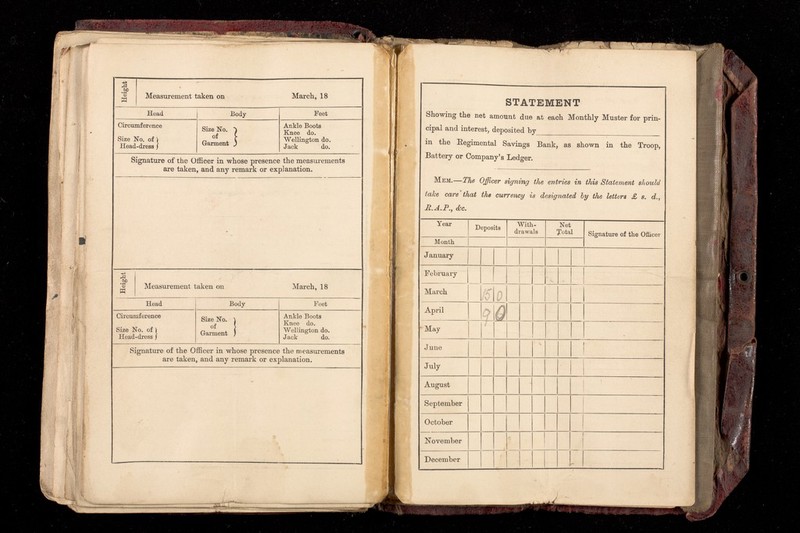 Height
Measurement taken on March, 18
Head Body Feet
Circumference
Size No. of Head-dress }
Size No. of Garment } {
Ankle Boots
Knee do.
Wellington do.
Jack do.
Signature of the Officer in whose presence the measurements
are taken, and any remark or explanation.
Height
Measurement taken on March, 18
Head Body Foot
Circumference
Size No. of Head-dress }
Size No. of Garment }
Ankle Boots
Knee do.
Wellington do.
Jack do.
Signature of the Officer in whose presence the measurements
are taken, and any remark or explanation.
STATEMENT
Showing the net amount due at each Monthly Muster for prin-
cipal and interest, deposited by
in the Regimental Savings Bank, as shown in the Troop,
Battery or Company's Ledger.
Mem.—The Officer signing the entries in this Statement should
take care that the currency is designated by the letters £ s. d.,
R.A.P., &c.
Year Deposits With-drawals Net Total Signature of the Officer
Month
January
February
March 15 0
April 9 0
May
June
July
August
September
October
November
December